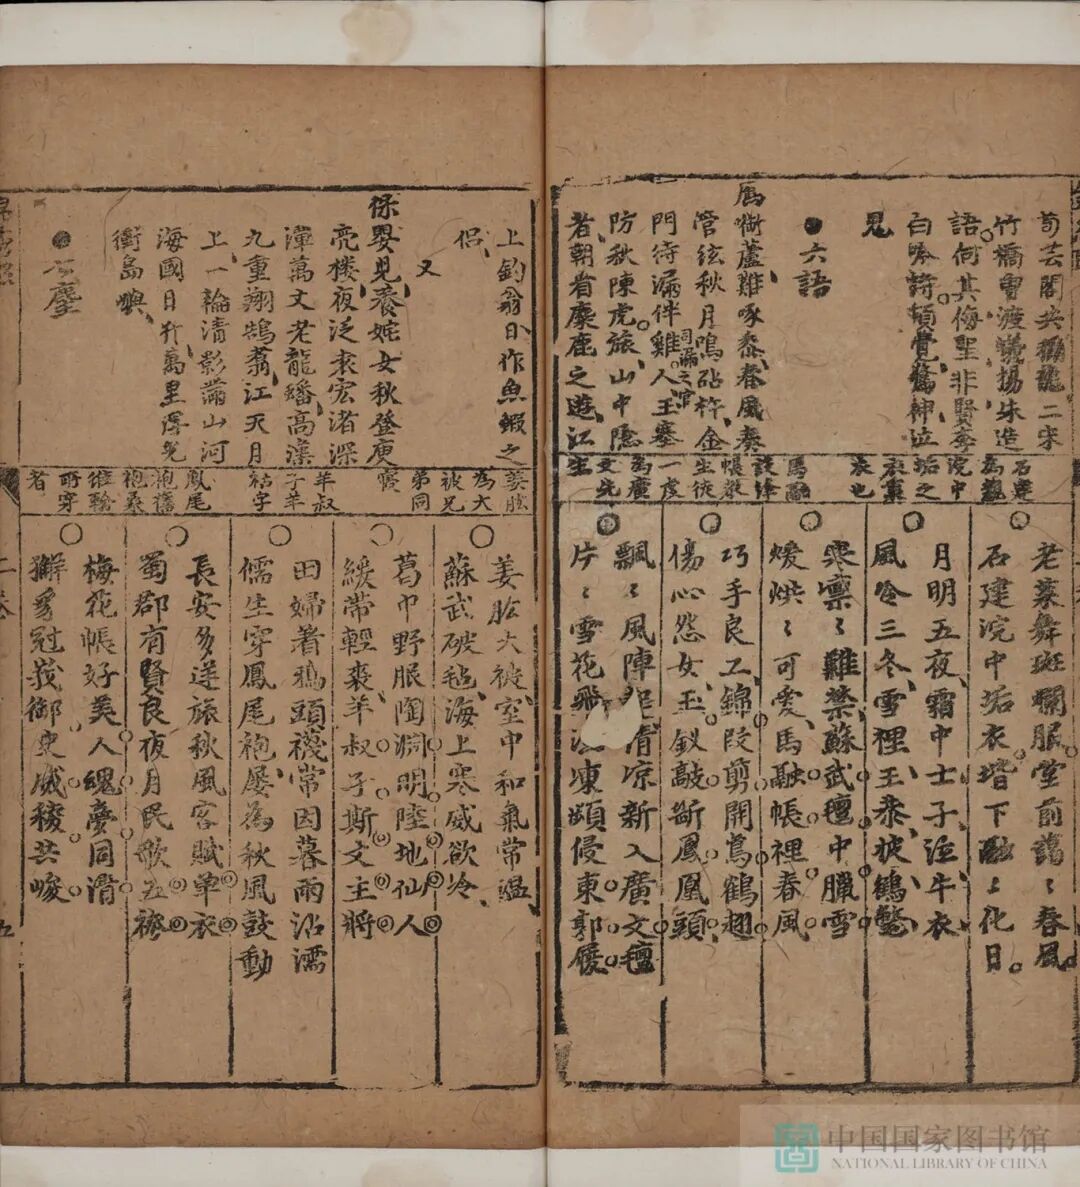 荀芸閣共
竹橋曾渡蟻揚朱造
語何其侮聖非賢李
白吟詩頓覺驚神泣
鬼
●六語
鴈銜蘆雞啄黍春風奏
管絃秋月鳴砧杵金
門待漏伴雞人玉塞
司漏之官
防秋陳虎旅山中隱
者朝看麋鹿之遊江
石建
為親
浣中
垢之
衣也
馬融
設絳
帳教
生徒
一虔
為廣
文先
生
老萊舞斑斕服堂前藹〻春風
石建浣中垢衣堦下融〻化日
月明五夜霜中士子泣牛衣
風冷三冬雪裡王恭披鶴氅
寒凛〻難禁蘇武氊中臘雪
煖烘〻可愛馬融帳裡春風
巧手良工錦段剪開鳥鶴翅
傷心怨女玉釵敲斷鳳凰頭
飄〻風陣清凉新入廣文氊
片〻雪花凍頻侵東郭履
上釣翁日作魚鰕之
侶
又
保嬰兒養姹女秋登庾
亮樓夜泛袁宏渚深
潭萬丈老龍蟠高漢
九重翔鵠翥江天月
上一輪清影滿山河
海國日升萬里浮光
衝島嶼
姜肱
為大
被兄
弟同
寢
羊叔
子羊
祜字
鳳尾
袍舊
袍桑
維翰
所穿
者
姜肱大被室中和氣常温
蘇武破毡海上寒威欲冷
葛巾野服陶淵明陸地仙人
緩帶輕裘羊叔子斯文主將
田婦着鴉頭襪常因暮雨沾濡
儒生穿鳳尾袍屡為秋風鼓動
長安多逆旅秋風客賦单衣
蜀郡有賢良夜月民歌五袴
梅花帳好美人魂夢同清
獬豸冠峩御史威稜共峻